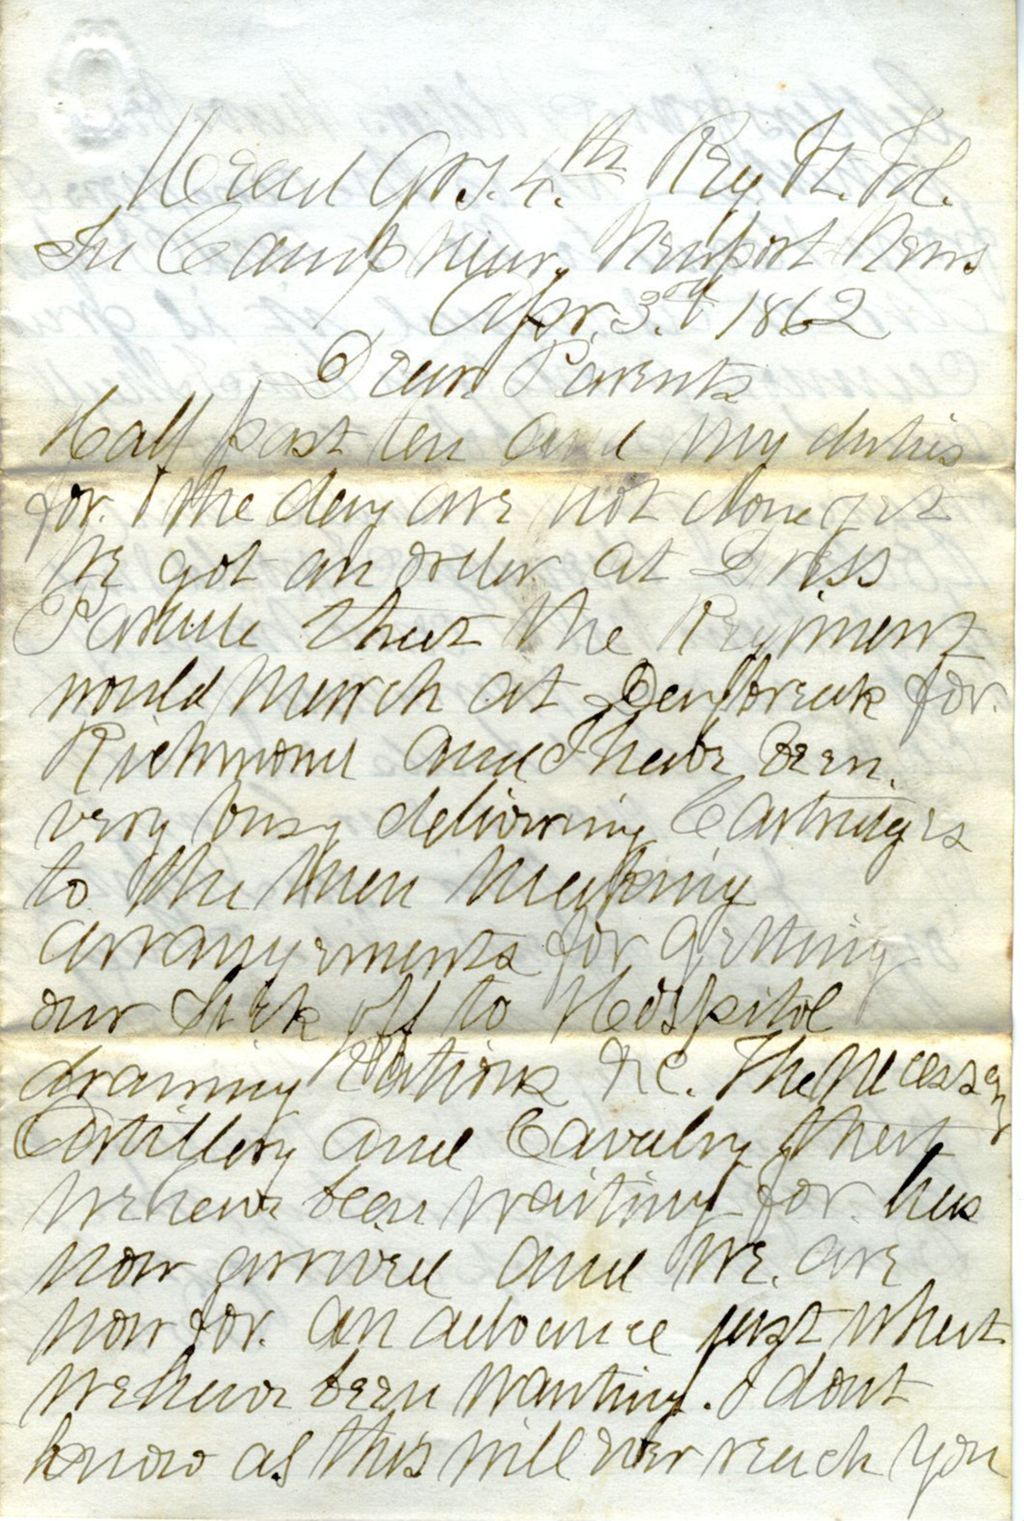 Head Qrs. 4th Reg. Vt. Vol.
In Camp near, Newport News
Apr. 3rd 1862
Dear Parents
Half past ten and my duties
for the day are not done yet
We got an order at Dress
Parade that the Regiment
would March at Daybreak for
Richmond and I have been
very busy delivering Cartridges
to the Men Making
arrangements for getting
our Sick off to Hospital
drawing Rations &c. The necessary
Artillery and Cavalry that
we have been waiting for has
now arrived and We are
now for an advance just what
We have been wanting. I dont
know as this will ever reach you